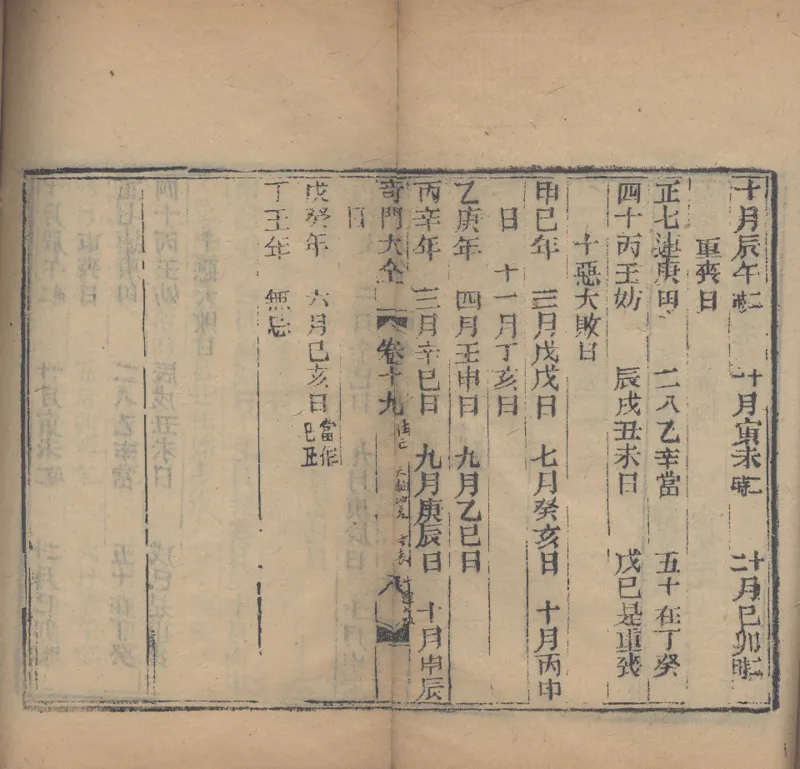 十月辰午時 十月寅未時 十二月巳卯時
重喪日
正七連庚甲 二八乙辛當 五十在丁癸
四十丙壬妨 辰戌丑未日 戊巳是重喪
十惡大敗日
甲巳年 三月戊戌日 七月癸亥日 十月丙申
日 十一月丁亥日
乙庚年 四月壬申日 九月乙巳日
丙辛年 三月辛巳日 九月庚辰日 十月甲辰
奇門大全 卷十九 八
日
戊癸年 六月己亥日當作巳丑
丁壬年 無忌